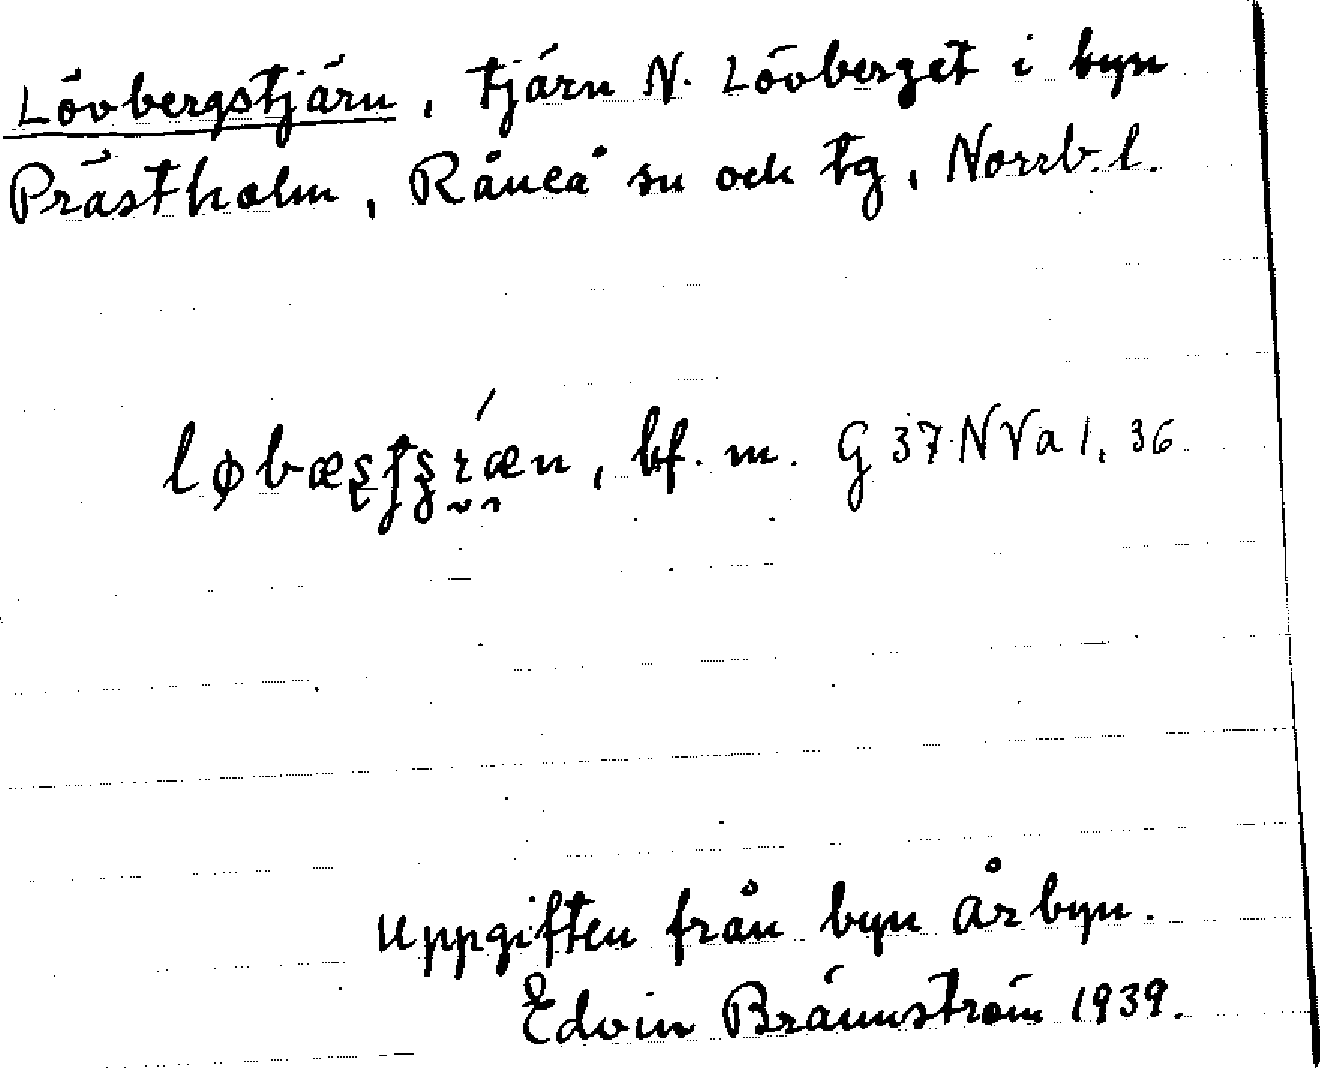 Lövbergstjärn, tjärn N. Lövberget i byn
Prästholm, Råneå sn och tg, Norrb. l.
bf. m. G 37 NVa 1, 36
Uppgiften från byn Årbyn.
Edvin Brännström 1939.